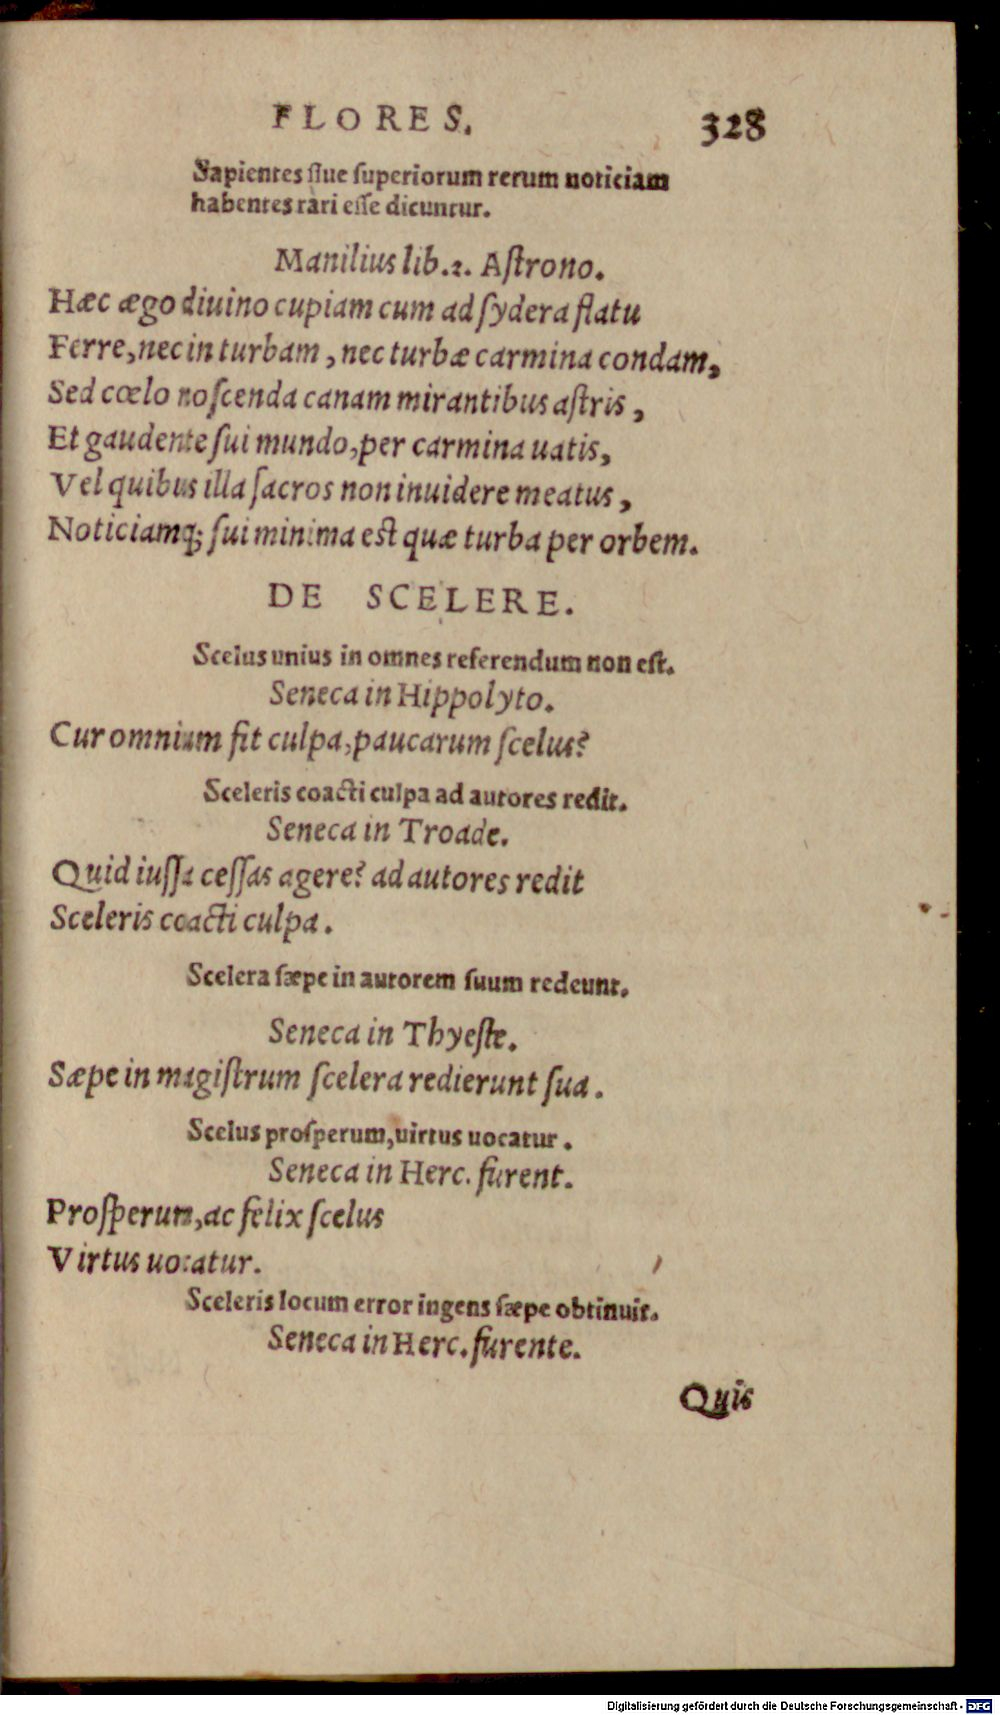 FLORES. 328
Sapientes siue superiorum rerum noticiam
habentes rari esse dicuntur.
Manilius lib.2. Astrono.
Hæc ægo diuino cupiam cum ad sydera flatu
Ferre, nec in turbam, nec turbæ carmina condam,
Sed cœlo noscenda canam mirantibus astris,
Et gaudente sui mundo, per carmina uatis,
Vel quibus illa sacros non inuidere meatus,
Noticiamq; sui minima est quæ turba per orbem.
DE SCELERE.
Scelus unius in omnes referendum non est.
Seneca in Hippolyto.
Cur omnium fit culpa, paucarum scelus?
Sceleris coacti culpa ad autores redit.
Seneca in Troade.
Quid iussa cessas agere? ad autores redit
Sceleris coacti culpa.
Scelera sæpe in autorem suum redeunt.
Seneca in Thyeste.
Sæpe in magistrum scelera redierunt sua.
Scelus prosperum, uirtus uocatur.
Seneca in Herc. furent.
Prosperum, ac felix scelus
Virtus uocatur.
Sceleris locum error ingens sæpe obtinuit.
Seneca in Herc. furente.
Quis
Digitalisierung gefördert durch die Deutsche Forschungsgemeinschaft - DFG